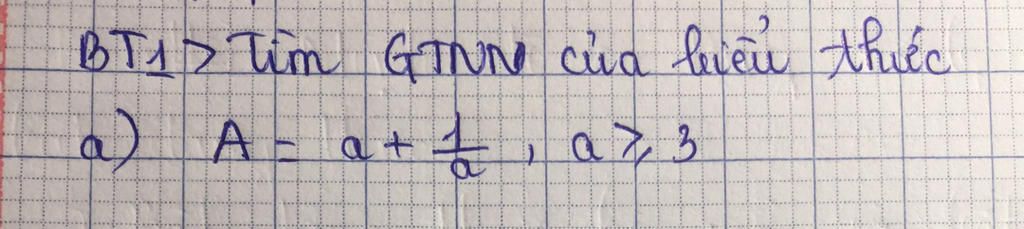 BT1> Tìm GTNN của biểu thức
a) A = a + 1/a , a ⩾ 3